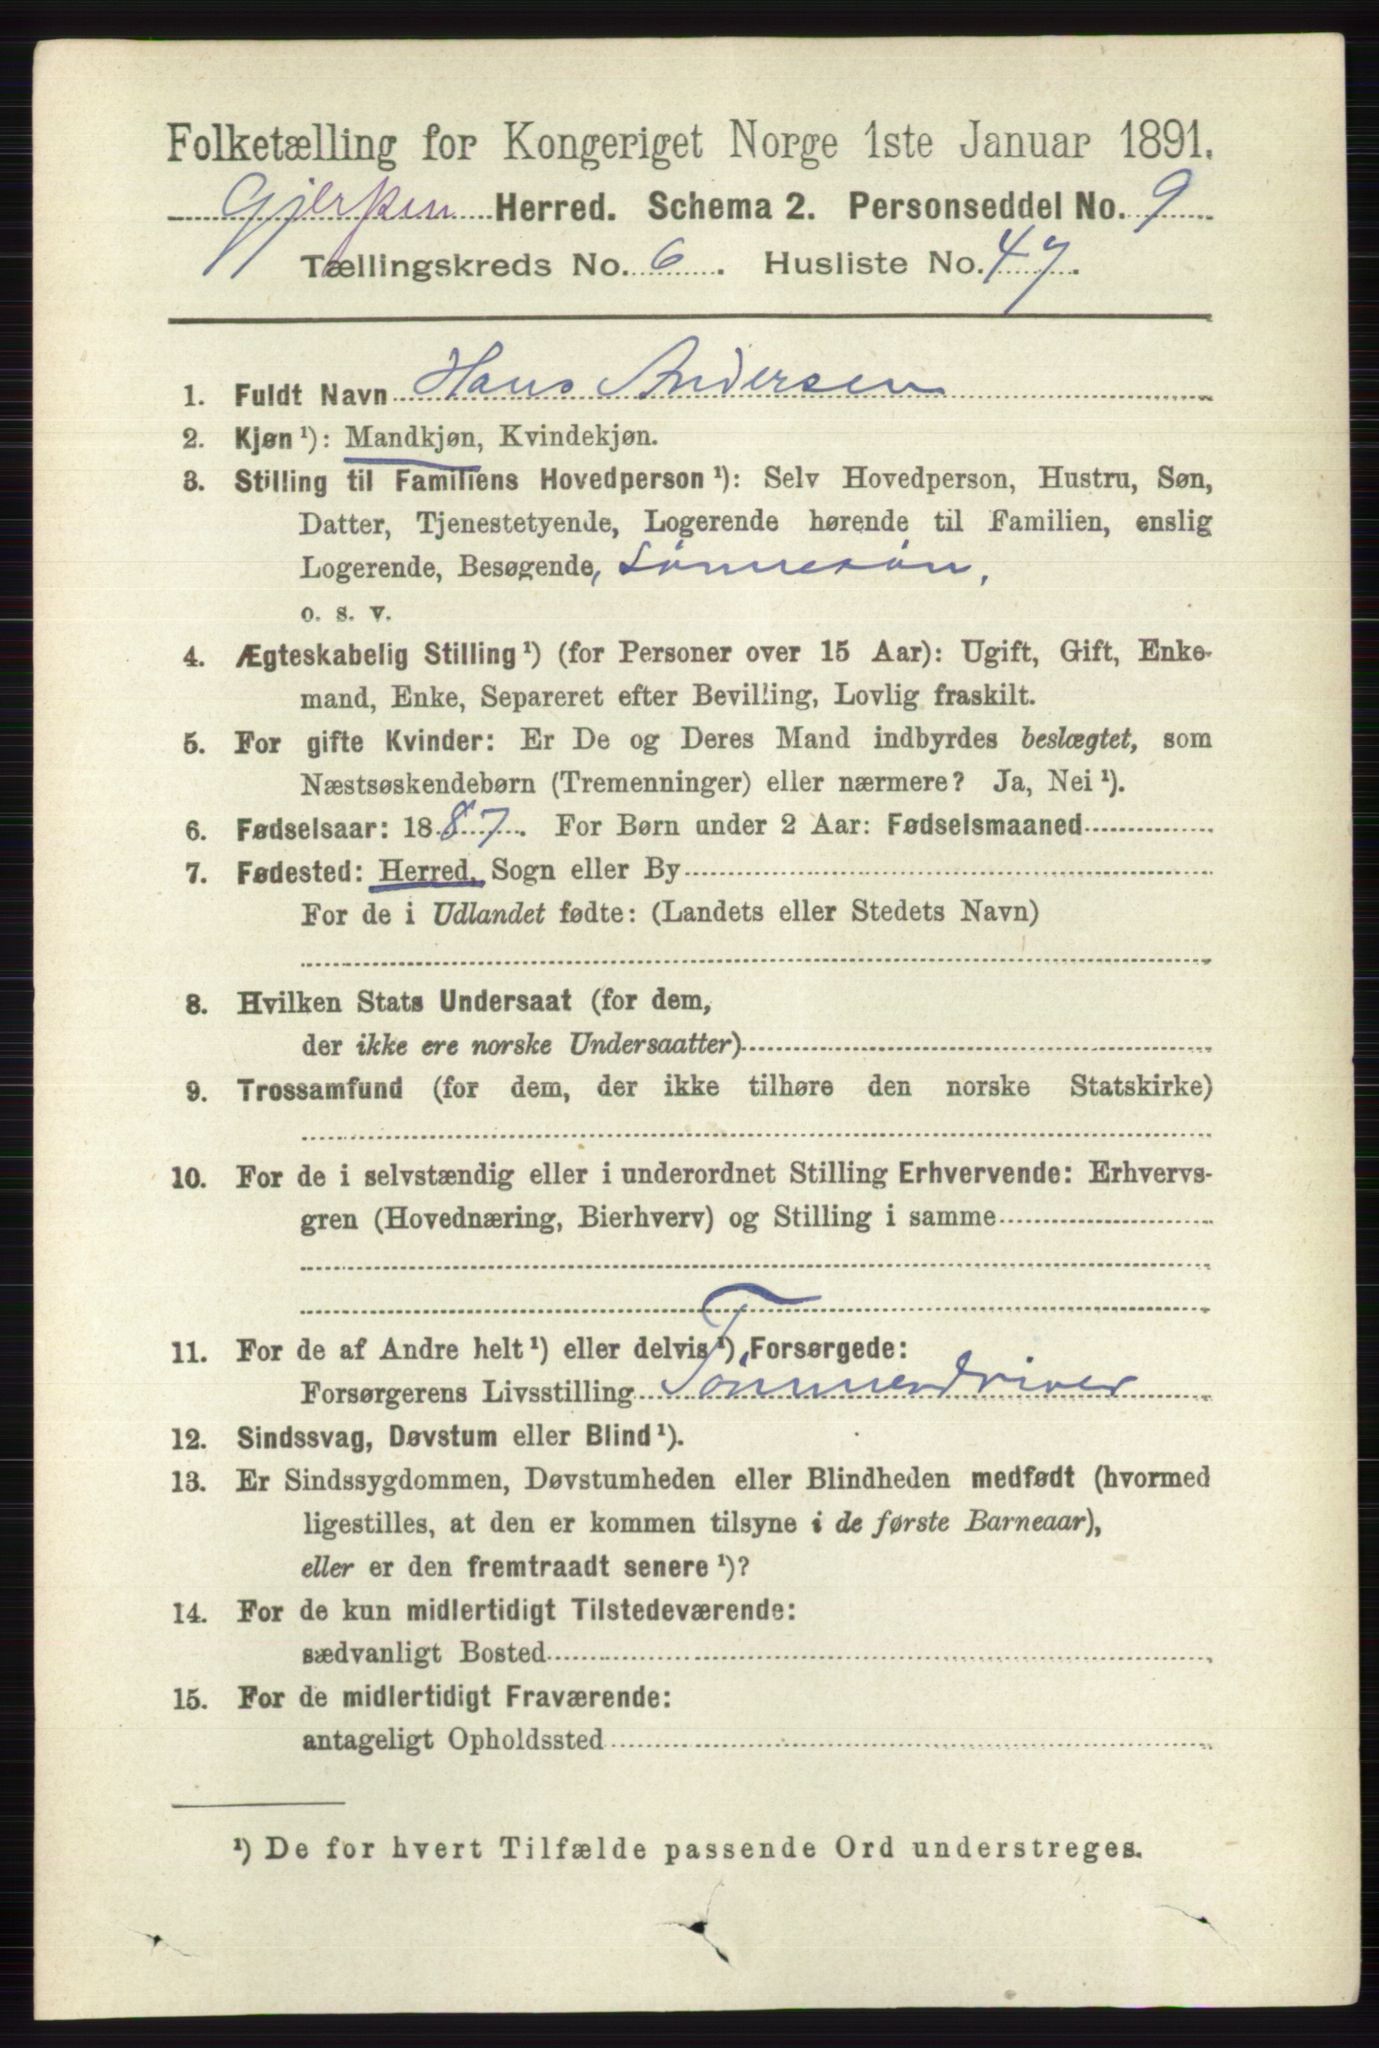 Folketælling for Kongeriget Norge 1ste Januar 1891.
Gjerpen Herred. Schema 2. Personseddel No. 9
Tællingskreds No. 6. Husliste No. 47.
1. Fuldt Navn Hans Andersen
2. Kjøn ¹): Mandkjøn, Kvindekjøn.
3. Stilling til Familiens Hovedperson ¹): Selv Hovedperson, Hustru, Søn,
Datter, Tjenestetyende, Logerende hørende til Familien, enslig
Logerende, Besøgende, Sønnesøn,
o. s. v.
4. Ægteskabelig Stilling ¹) (for Personer over 15 Aar): Ugift, Gift, Enke-
mand, Enke, Separeret efter Bevilling, Lovlig fraskilt.
5. For gifte Kvinder: Er De og Deres Mand indbyrdes beslægtet, som
Næstsøskendebørn (Tremenninger) eller nærmere? Ja, Nei ¹).
6. Fødselsaar: 1887. For Børn under 2 Aar: Fødselsmaaned
7. Fødested: Herred, Sogn eller By
For de i Udlandet fødte: (Landets eller Stedets Navn)
8. Hvilken Stats Undersaat (for dem,
der ikke ere norske Undersaatter)
9. Trossamfund (for dem, der ikke tilhøre den norske Statskirke)
10. For de i selvstændig eller i underordnet Stilling Erhvervende: Erhvervs-
gren (Hovednæring, Bierhverv) og Stilling i samme
11. For de af Andre helt ¹) eller delvis ¹), Forsørgede:
Forsørgerens Livsstilling Tømmerdriver
12. Sindssvag, Døvstum eller Blind ¹).
13. Er Sindssygdommen, Døvstumheden eller Blindheden medfødt (hvormed
ligestilles, at den er kommen tilsyne i de første Barneaar),
eller er den fremtraadt senere ¹)?
14. For de kun midlertidigt Tilstedeværende:
sædvanligt Bosted
15. For de midlertidigt Fraværende:
antageligt Opholdssted
¹) De for hvert Tilfælde passende Ord understreges.